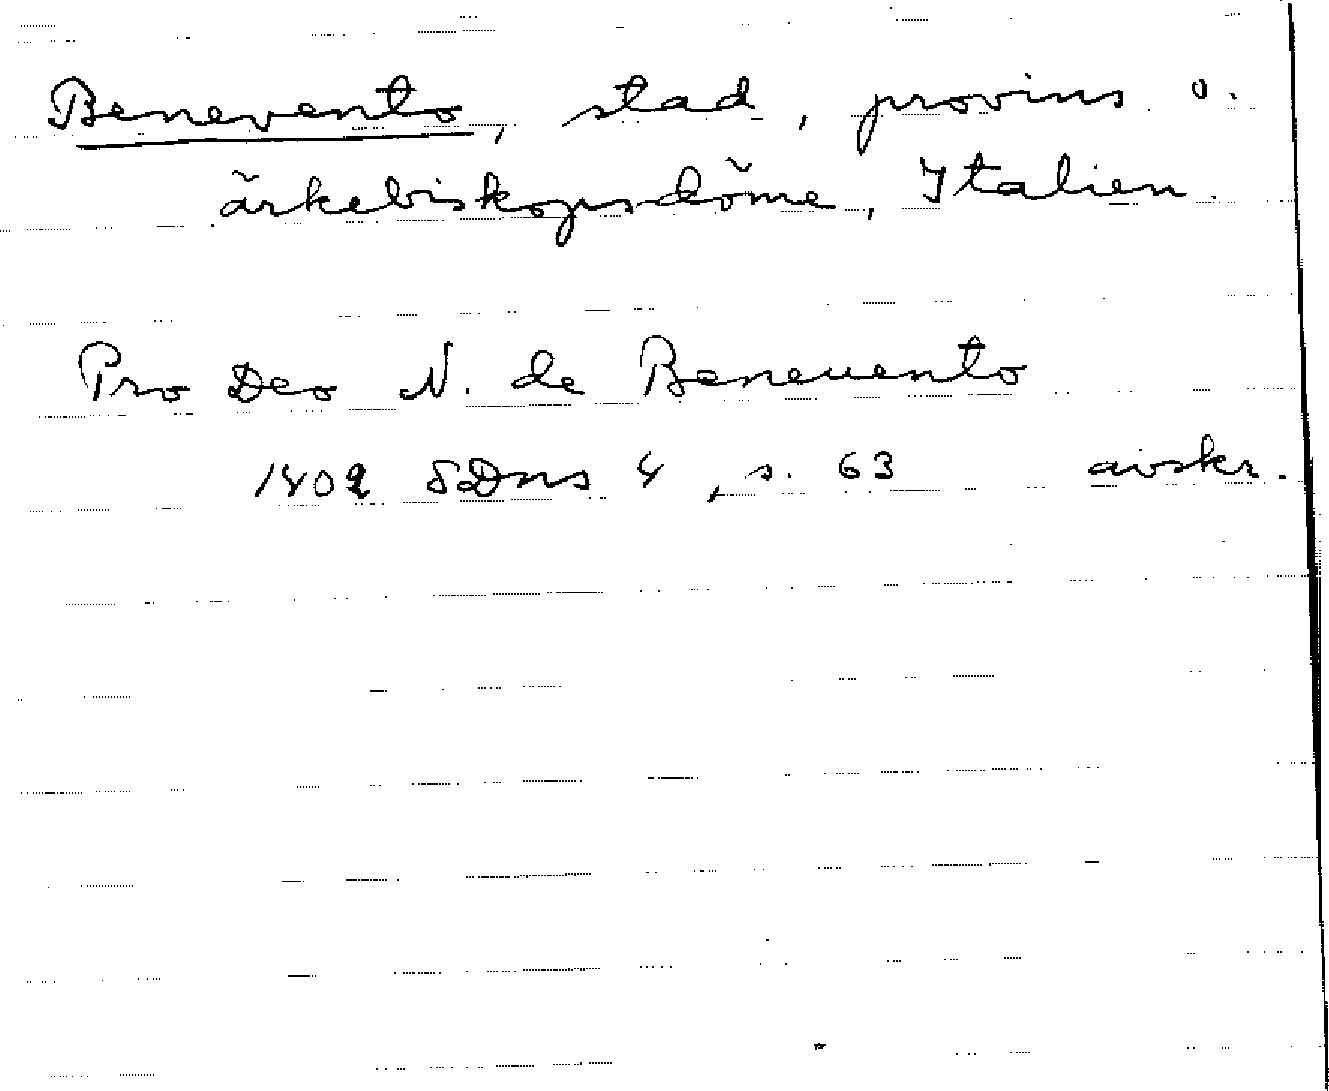 Benevento, stad, provins o.
ärkebiskopsdöme, Italien.
Pro Deo N. de Beneuento
1402 SDns 4, s. 63 avskr.